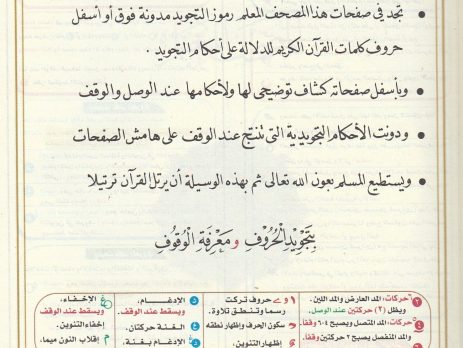 تجد في صفحات هذا المصحف المعلم رموز التجويد مدونة فوق أو أسفل
حروف كلمات القرآن الكريم للدلالة على أحكام التجويد .
وبأسفل صفحاته كشاف توضيحي لها ولأحكامها عند الوصل والوقف
ودونت الأحكام التجويدية التي تنتج عند الوقف على هامش الصفحات
ويستطيع المسلم بعون الله تعالى ثم بهذه الوسيلة أن يرتل القرآن ترتيلا
بِتَجْوِيدِ الْحُرُوفِ و مَعْرِفَةِ الْوُقُوفِ
حركات: المد العارض والمد اللين.
ويظل (٢) حركتين عند الوصل.
حركات: المد المتصل ويصبح ٤-٦ وقفاً.
والمد المنفصل يصبح ٢ حركتين وقفاً.
حروف تركت
رسما وتنطق تلاوة.
سكون الحرف وإظهار نطقه
إظهار التنوين.
الإدغـام.
ويسقط عند الوقف
الغنة حركتان.
الإدغام بغنة.
الإخفاء.
ويسقط عند الوقف
إخفاء التنوين.
م إقلاب النون ميما.